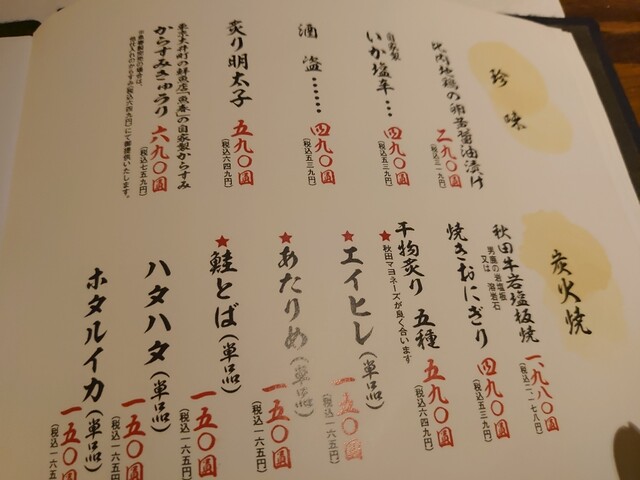 珍味
比内地鶏の卵黄醤油漬け 二九〇圓
(税込三一九円)
自家製
いか塩辛… 四九〇圓
(税込五三九円)
酒盗……… 四九〇圓
(税込五三九円)
炙り明太子 五九〇圓
(税込六四九円)
東京大井町の鮮魚店「魚春」の自家製からすみ
からすみきゅうり 六九〇圓
(税込七五九円)
炭火焼
秋田牛岩塩板焼 一、九八〇圓
男鹿の岩塩板
又は 溶岩石
(税込二、一七八円)
焼きおにぎり 四九〇圓
(税込五三九円)
干物炙り 五種 五九〇圓
★秋田マヨネーズが良く合います
(税込六四九円)
★エイヒレ(単品) 一五〇圓
(税込一六五円)
★あたりめ(単品) 一五〇圓
(税込一六五円)
★鮭とば(単品) 一五〇圓
(税込一六五円)
ハタハタ(単品) 一五〇圓
(税込一六五
ホタルイカ(単品) 一五〇圓
(税込一六五